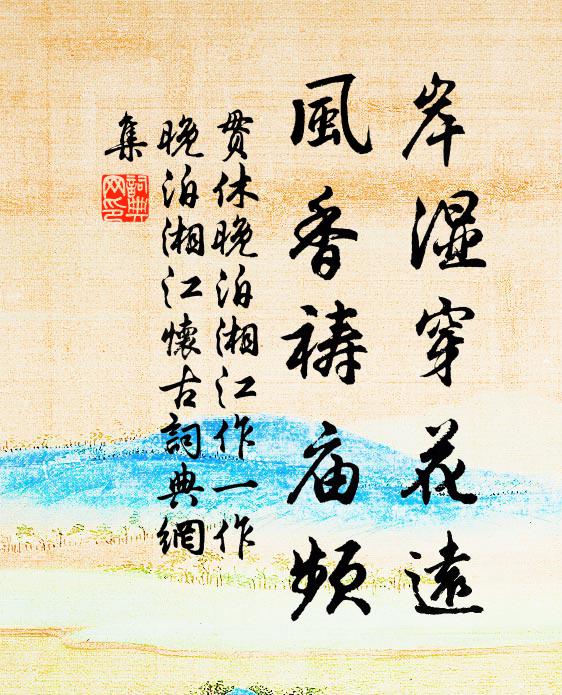 岸湿穿花遠
風香祷庙頻
贯休晚泊湘江作一作
晚泊湘江懷古詞典網
集
詞典
网印